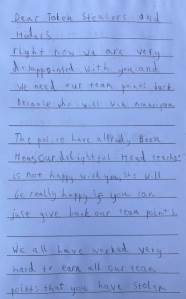 Dear Token Stealers and
Haters,
right now we are very
disappointed with you and
we need our team points back
because who will win
The police have already been
Here, our delightful Head teacher
is not happy with you, she will
be really happy if you can
just give back our team points
We all have worked very
hard to earn all our team
points that you have stolen